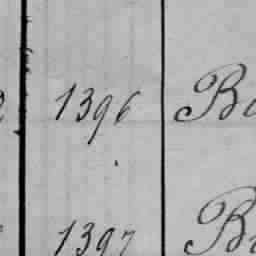 1396 Ba
1397 Ba